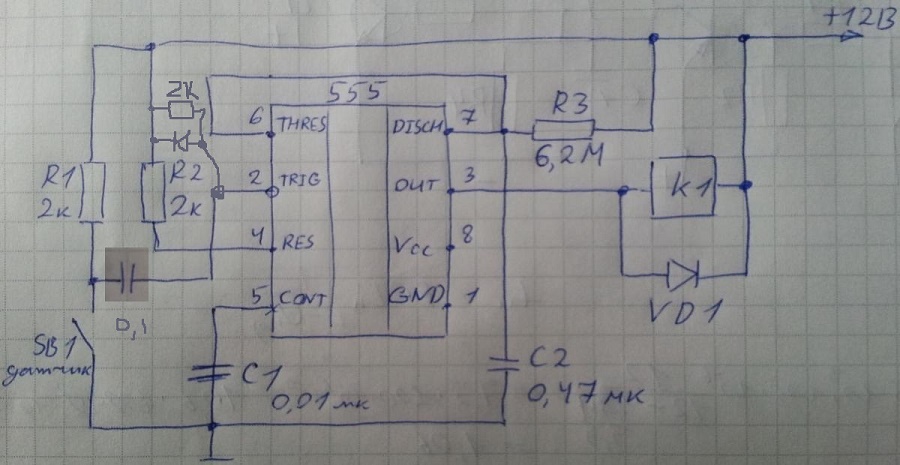 +12В
555
2К
6
THRES
DISCH
7
R3
6,2М
R1
2к
R2
2к
2
TRIG
OUT
3
K1
4
RES
Vcc
8
5
CONT
GND
1
VD1
0,1
SB1
датчик
C1
0,01мк
C2
0,47мк